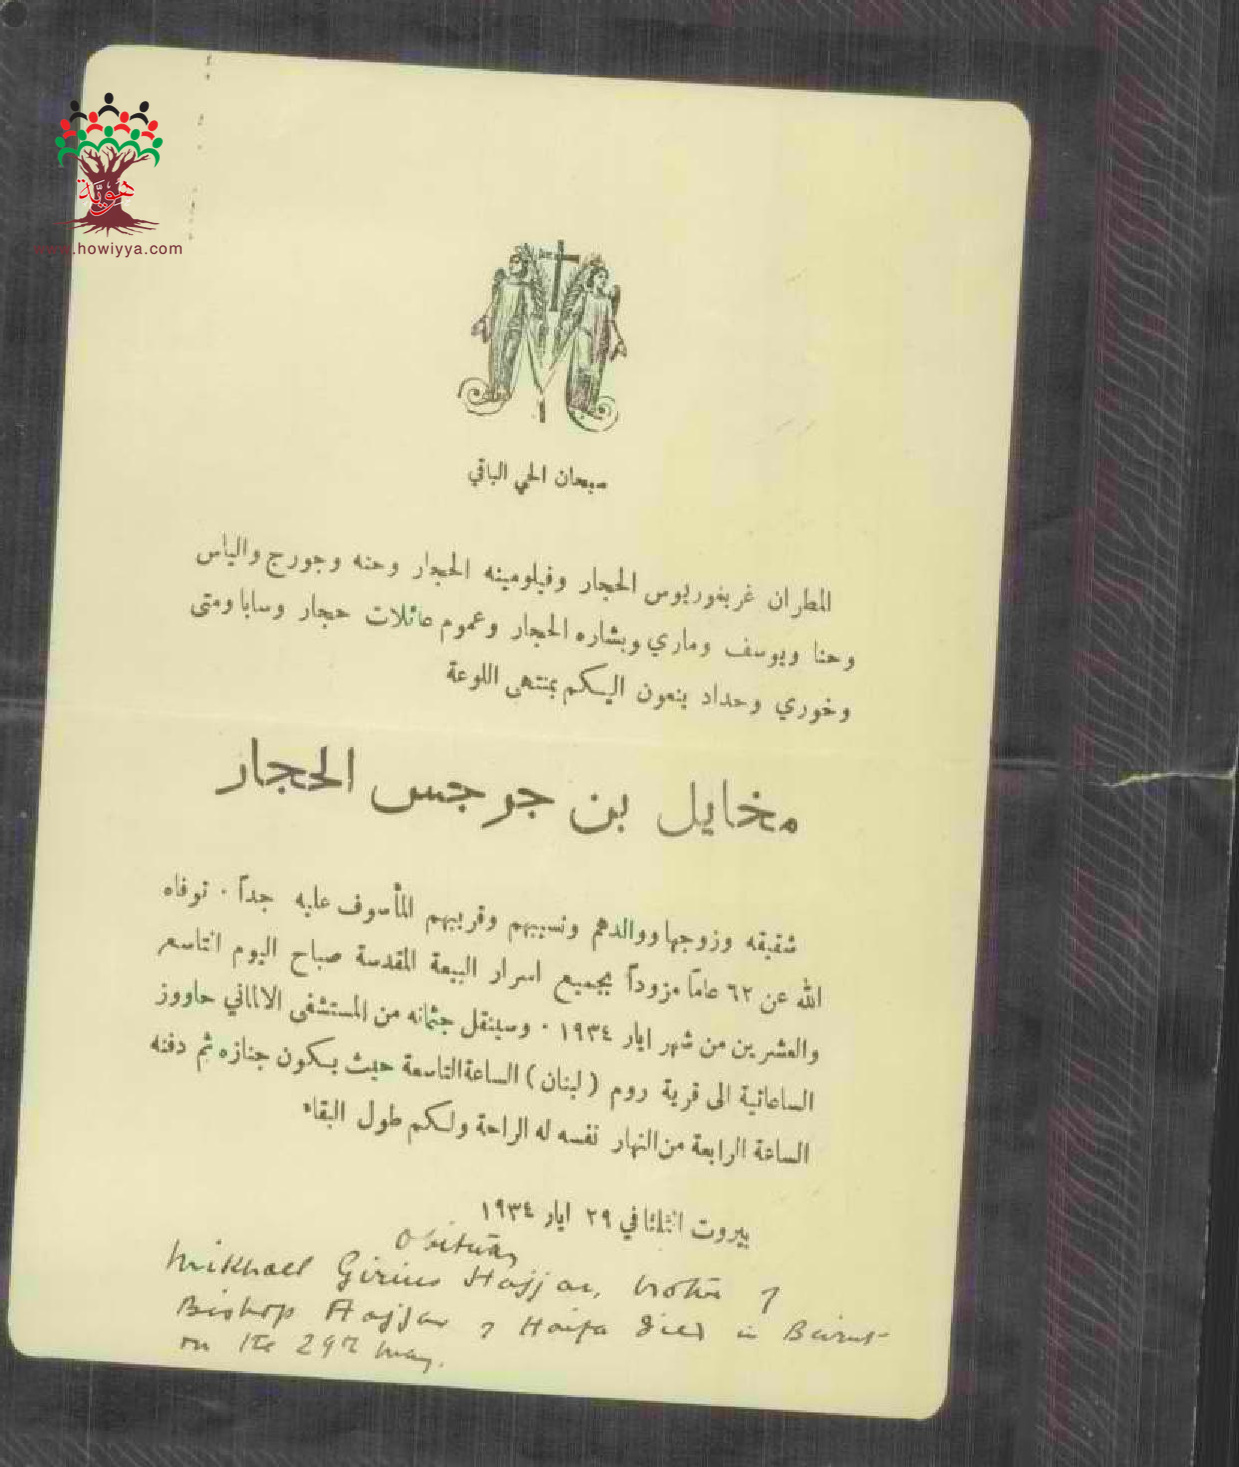 هوية
www.howiyya.com
سبحان الحي الباقي
المطران غريغوريوس الحجار وفيلومينه الحجار وحنه وجورج والياس
وحنا ويوسف وماري وبشاره الحجار وعموم عائلات حجار وسابا ومتى
وخوري وحداد ينعون اليكم بمنتهى اللوعة
مخايل بن جرجس الحجار
شقيقه وزوجها ووالدهم ونسيبهم وقريبهم المأسوف عليه جداً . توفاه
الله عن ٦٢ عاماً مزوداً بجميع اسرار البيعة المقدسة صباح اليوم التاسع
والعشرين من شهر ايار ١٩٣٤ . وسينقل جثمانه من المستشفى الالماني حاووز
الساعاتية الى قرية روم ( لبنان ) الساعة التاسعة حيث يكون جنازه ثم دفنه
الساعة الرابعة من النهار نفسه له الراحة ولكم طول البقاء
بيروت الثلثا في ٢٩ ايار ١٩٣٤
Obituary
Mikhael Girius Hajjar, brother of
Bishop Hajjar of Haifa died in Beirut
on the 29th May.